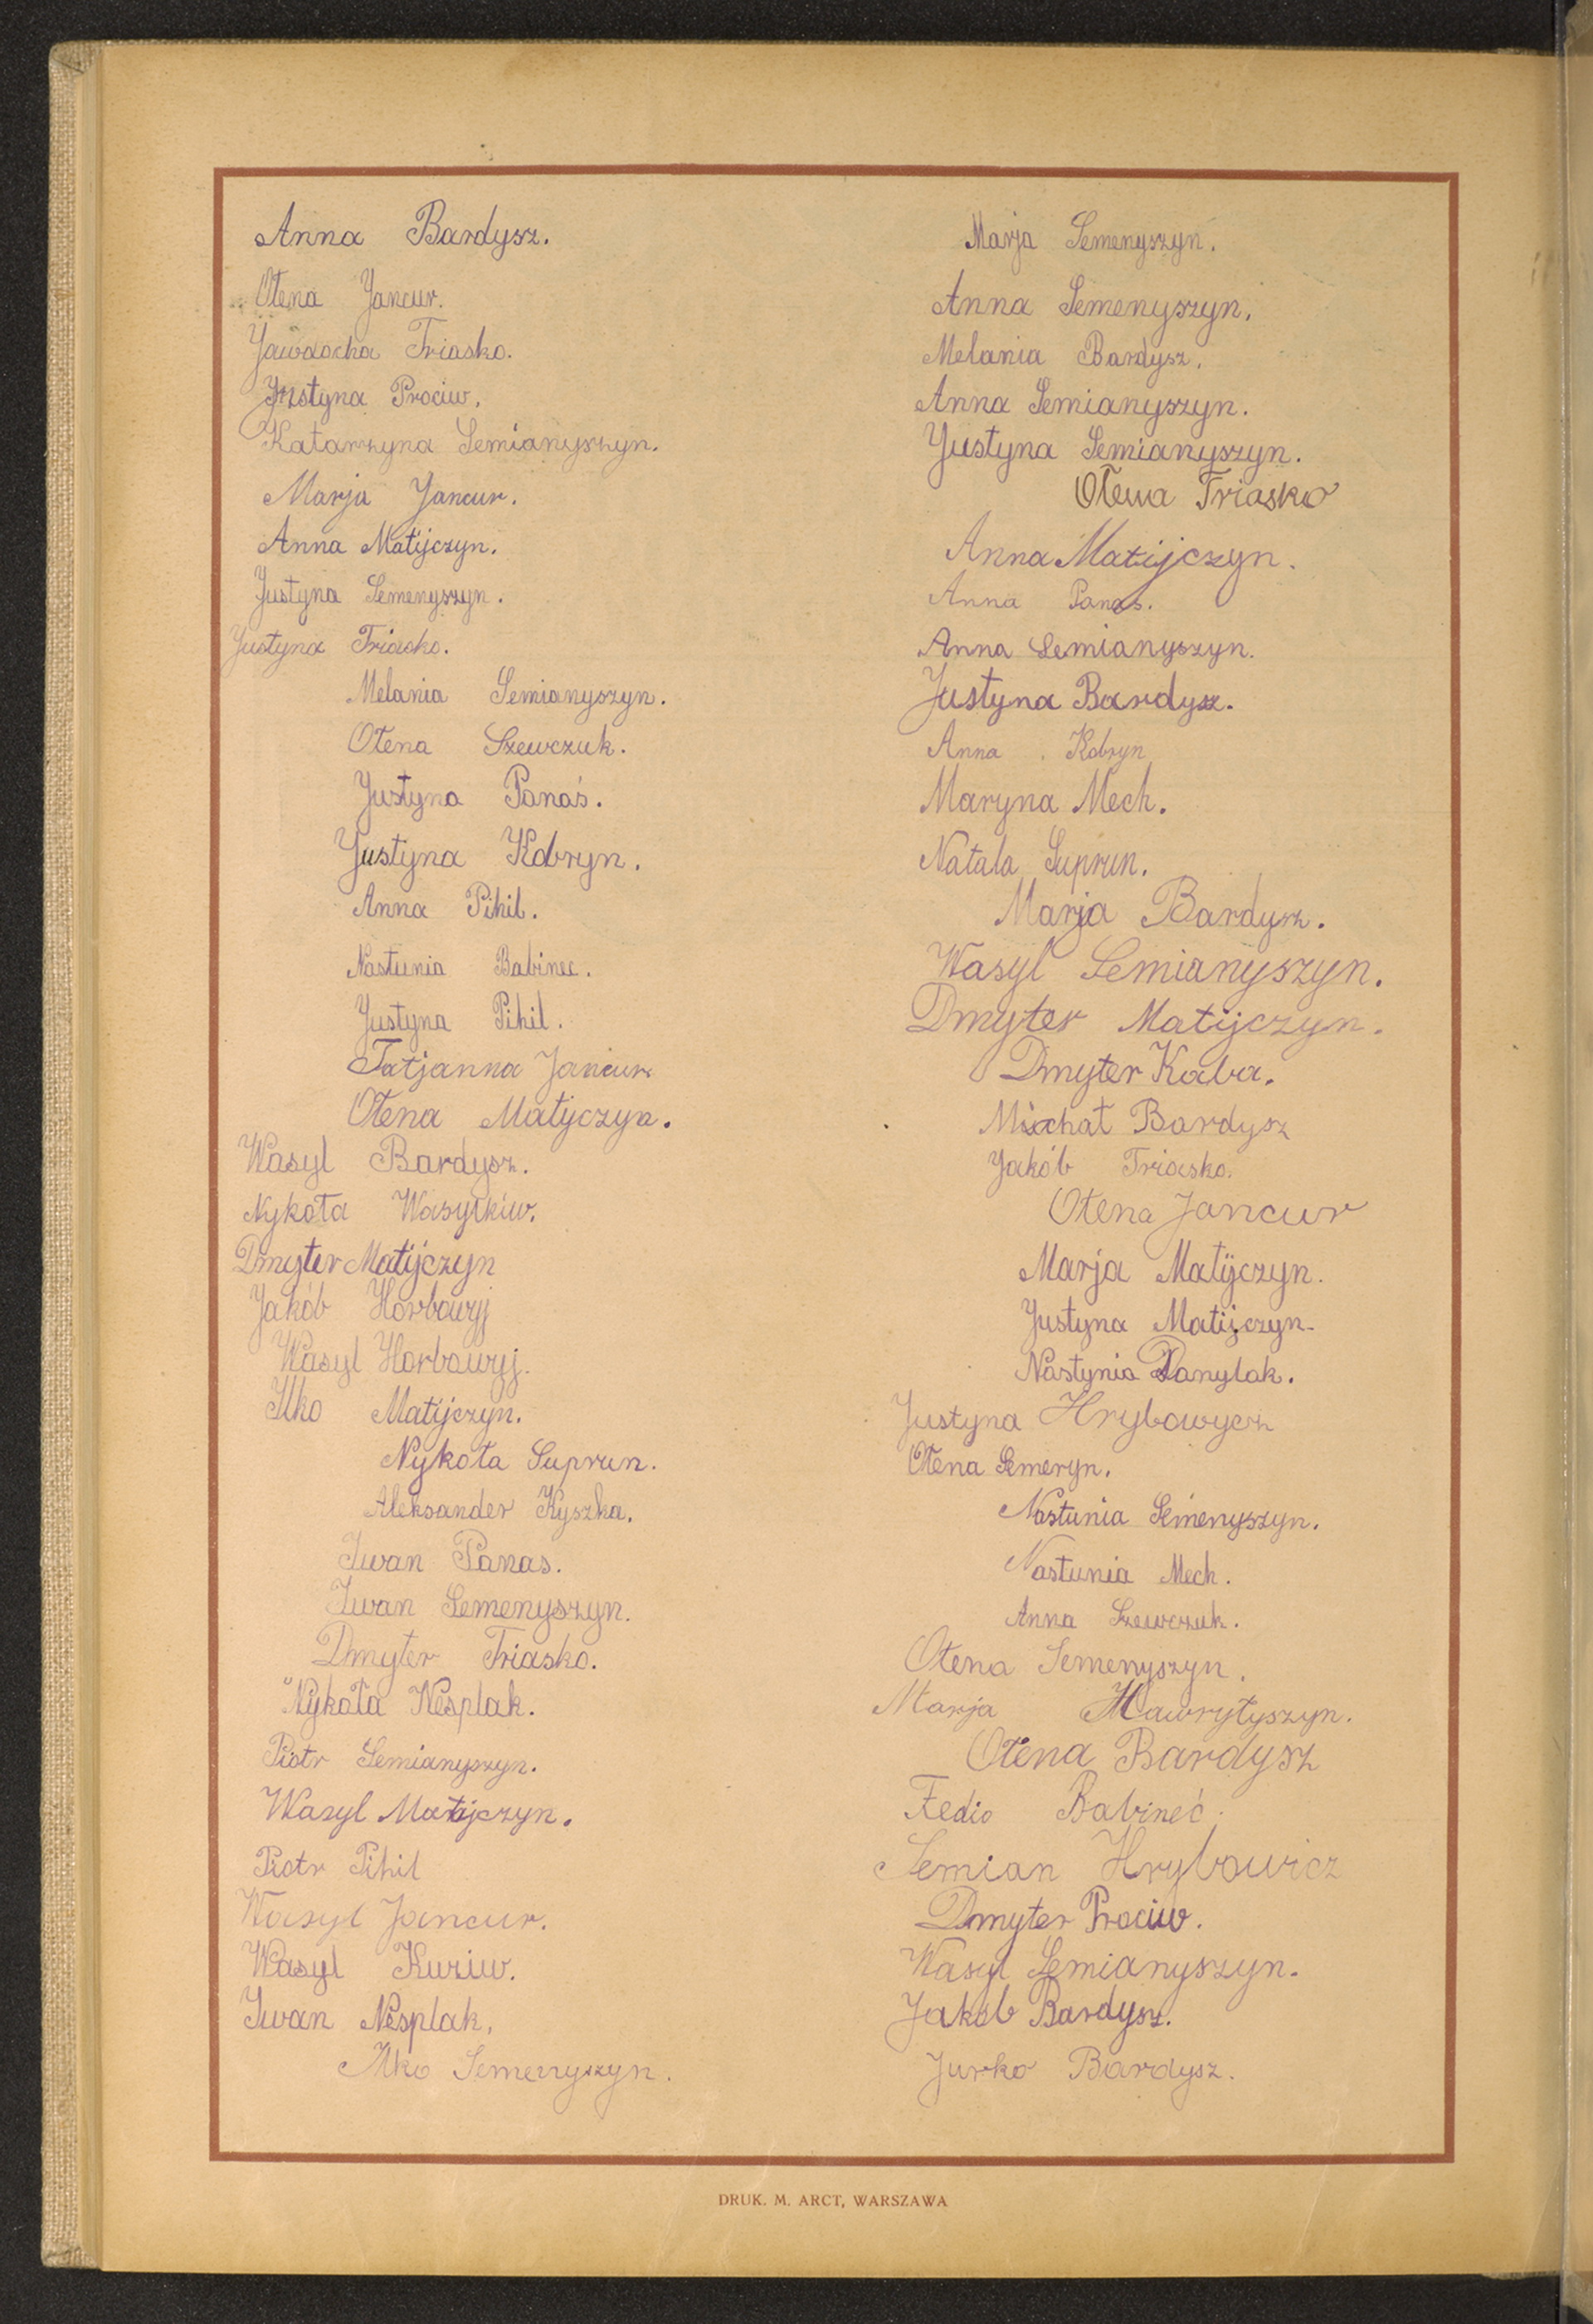 Anna Bardysz.
Ołena Jancur.
Jawdocha Triasko.
Justyna Prociw.
Katarzyna Semianyszyn.
Marja Jancur.
Anna Matijczyn.
Justyna Semenyszyn.
Justyna Triasko.
Melania Semianyszyn.
Ołena Szewczuk.
Justyna Panaś.
Justyna Kobryn.
Anna Pihil.
Nastunia Babinec.
Justyna Pihil.
Tatjanna Jancur
Ołena Matijczyn.
Wasyl Bardysz.
Nykoła Wasyłkiw.
Dmyter Matijczyn
Jakób Horbowyj
Wasyl Horbowyj.
Ilko Matijczyn.
Nykoła Suprun.
Aleksander Kyszka.
Iwan Panas.
Iwan Semenyszyn.
Dmyter Triasko.
Nykoła Nesplak.
Piotr Semianyszyn.
Wasyl Matijczyn.
Piotr Pihil
Wasyl Jancur.
Wasyl Kuziw.
Iwan Nesplak,
Ilko Semenyszyn.
Marja Semenyszyn.
Anna Semenyszyn.
Melania Bardysz.
Anna Semianyszyn.
Justyna Semianyszyn.
Ołena Triasko
Anna Matijczyn.
Anna Panas.
Anna Semianyszyn.
Justyna Bardysz.
Anna Kobryn
Maryna Mech.
Natala Suprun.
Marja Bardysz.
Wasyl Semianyszyn.
Dmyter Matijczyn.
Dmyter Kaba.
Michał Bardysz
Jakób Triasko.
Ołena Jancur
Marja Matijczyn.
Justyna Matijczyn.
Nastynia Danylak.
Justyna Hrybowycz
Ołena Semeryn.
Nastunia Semenyszyn.
Nastunia Mech.
Anna Szewczuk.
Ołena Semenyszyn.
Marja Hawryłyszyn.
Ołena Bardysz
Fedio Babineć.
Semian Hrybowicz
Dmyter Prociw.
Wasyl Semianyszyn.
Jakób Bardysz.
Jurko Bardysz.
DRUK. M. ARCT, WARSZAWA